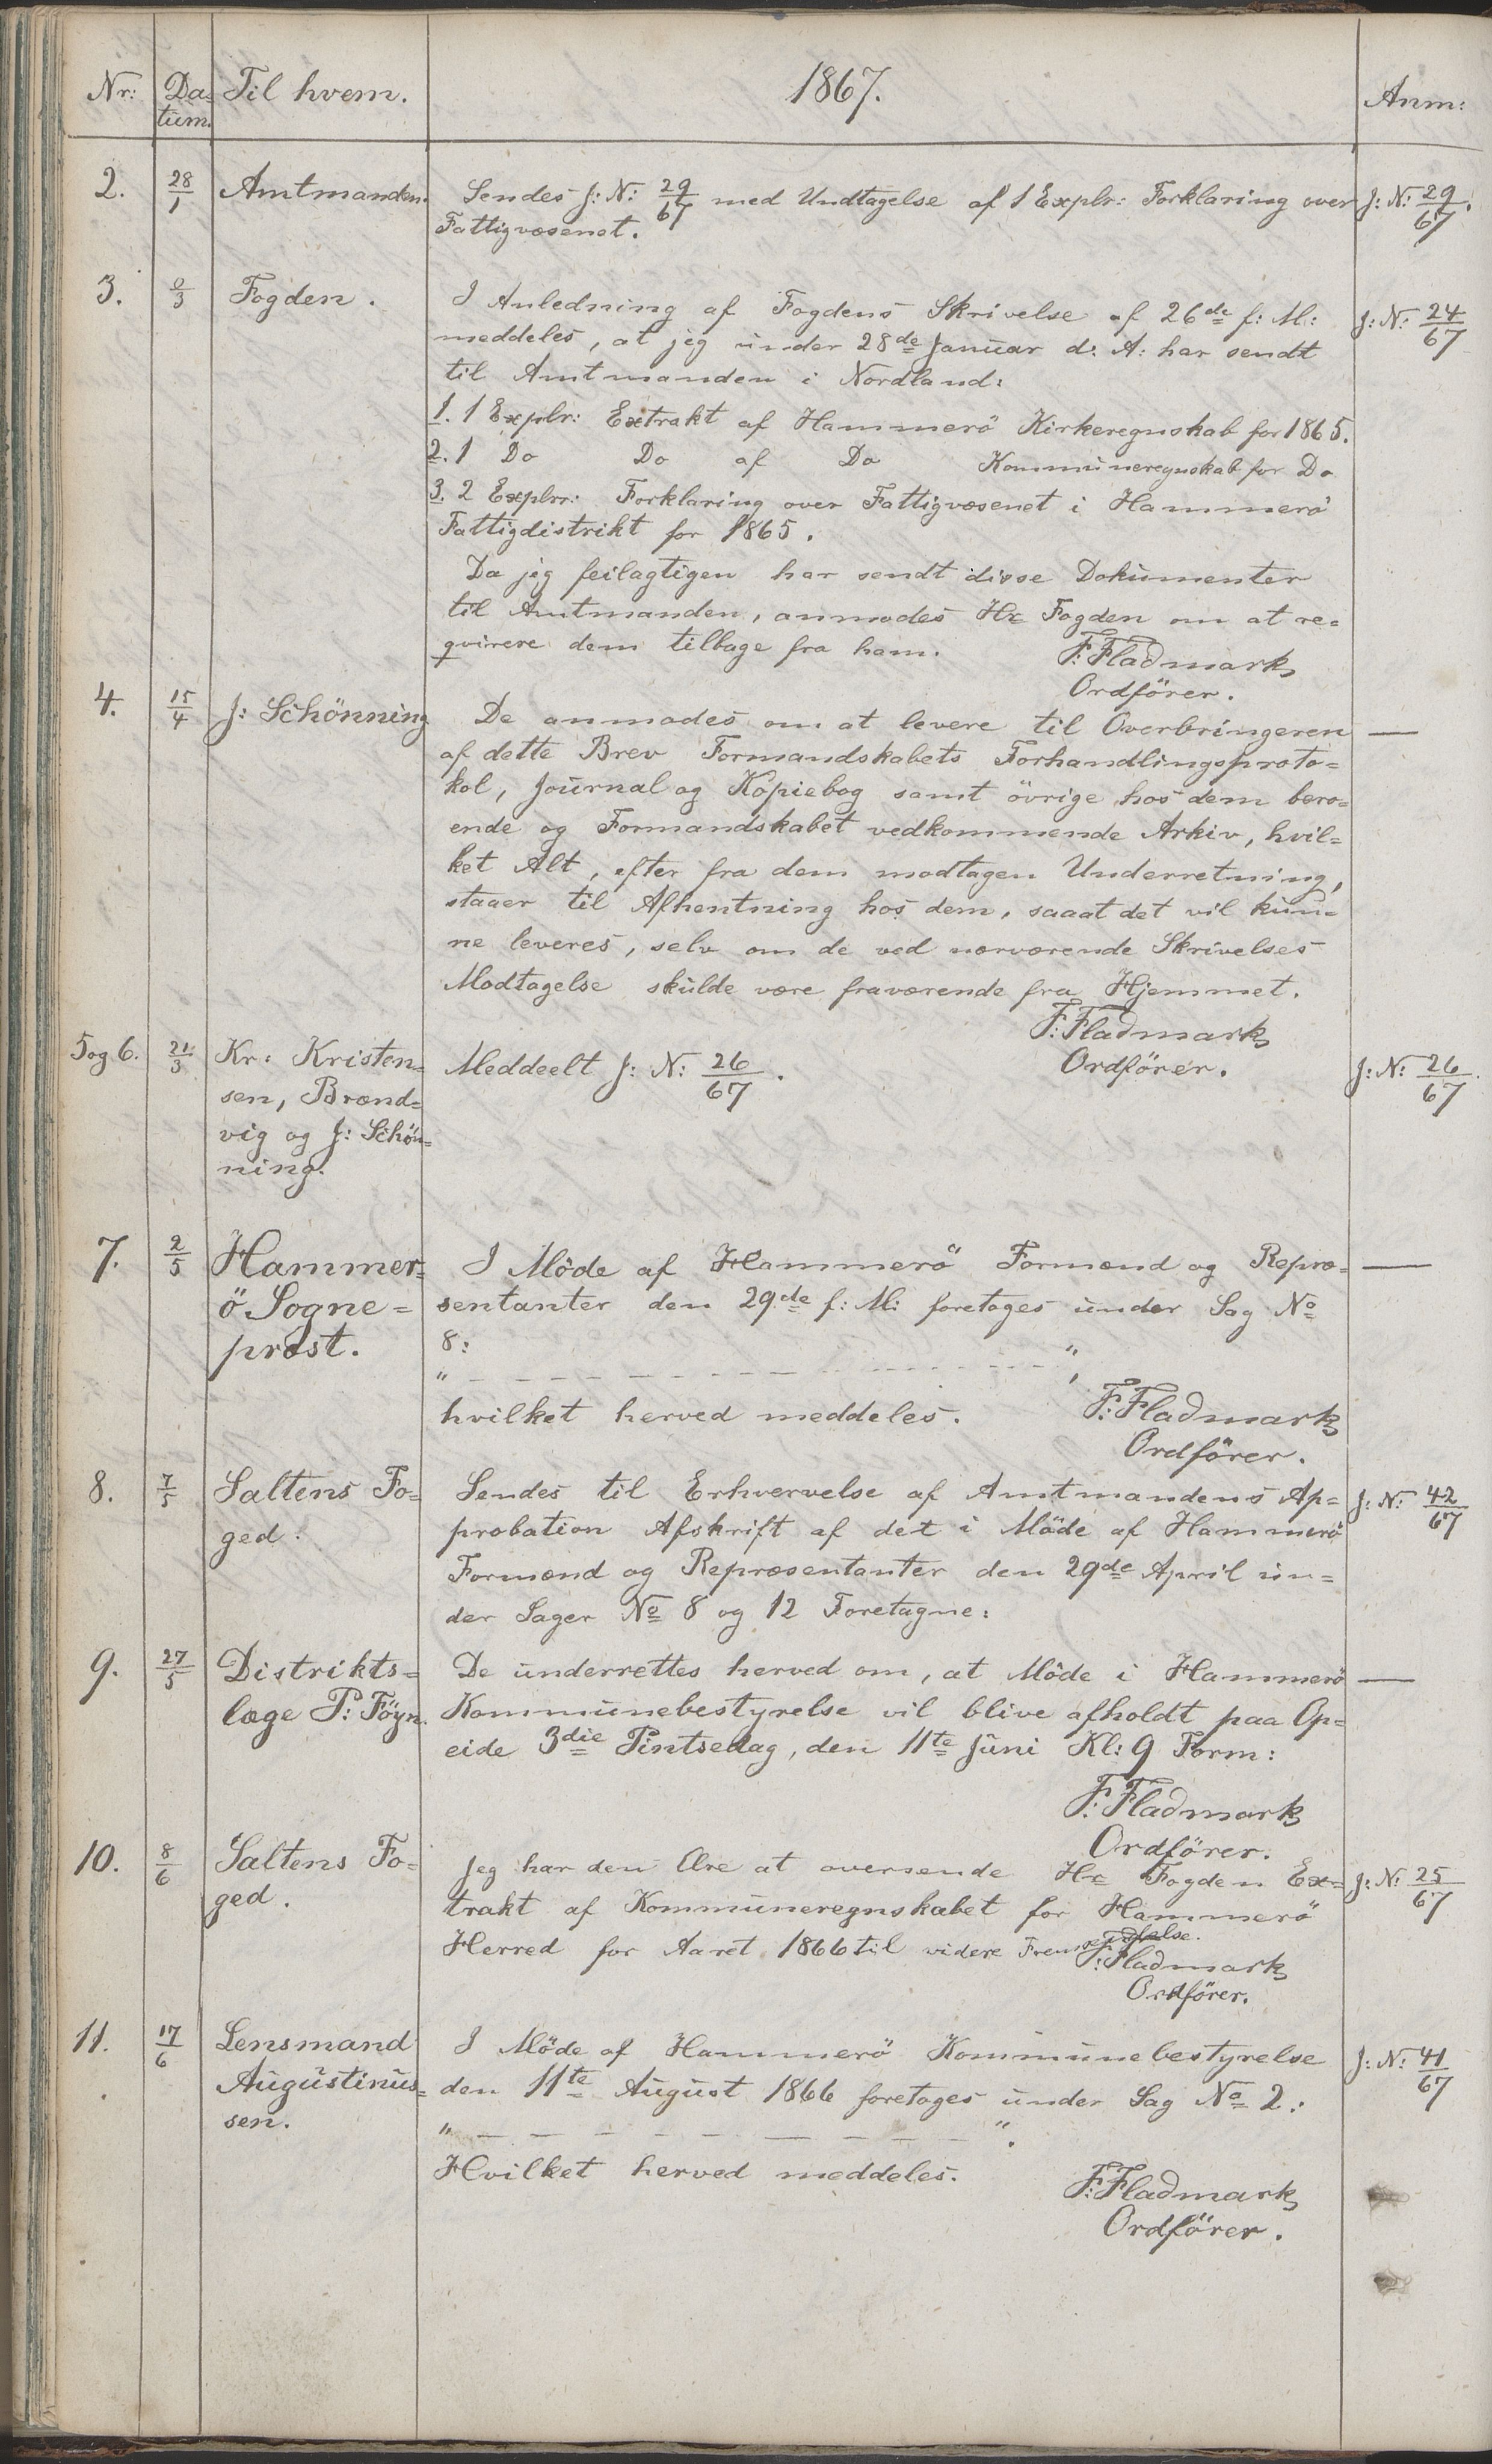 Nr: Da= Til hvem. 1867. Anm:
tum.
2. 28/1 Amtmanden. Sendes J: N: 29/67 med Undtagelse af 1 Explr: Forklaring over J: N: 29/67.
Fattigvæsenet.
3. /3 Fogden. I Anledning af Fogdens Skrivelse af 26de f: M: J: N: 24/67
meddeles, at jeg under 28de Januar d: A: har sendt
til Amtmanden i Nordland:
1. 1 Explr: Extrakt af Hammerö Kirkeregnskab for 1865.
2. 1 Do Do af Do Kommuneregnskab for Do
3. 2 Explrr: Forklaring over Fattigvæsenet i Hammerö
Fattigdistrikt for 1865.
Da jeg feilagtigen har sendt disse Dokumenter
til Amtmanden, anmodes Hr Fogden om at re=
qvirere dem tilbage fra ham. F: Fladmark
Ordförer.
4. 15/4 J: Schönning De anmodes om at levere til Overbringeren —
af dette Brev Formandskabets Forhandlingsproto=
kol, Journal og Kopiebog samt övrige hos dem bero=
ende og Formandskabet vedkommende Arkiv, hvil=
ket Alt, efter fra dem modtagen Underretning,
staaer til Afhentning hos dem, saaat det vil kun=
ne leveres, selv om de ved nærværende Skrivelses
Modtagelse skulde være fraværende fra Hjemmet.
F: Fladmark
5 og 6. 21/3 Kr: Kristen= Meddeelt J: N: 26/67. Ordförer. J: N: 26/67.
sen, Brænd=
vig og J: Schön=
ning.
7. 2/5 Hammer= I Möde af Hammerö Formænd og Repræ= —
ö Sogne= sentanter den 29de f: M: foretoges under Sag No
præst. 8:
" — — — — — — — — — — ",
hvilket herved meddeles. F: Fladmark
Ordförer.
8. 7/5 Saltens Fo= Sendes til Erhvervelse af Amtmandens Ap= J: N: 42/67
ged. probation Afskrift af det i Möde af Hammerö
Formænd og Repræsentanter den 29de April un=
der Sager No 8 og 12 Foretagne:
9. 27/5 Distrikts= De underrettes herved om, at Möde i Hammerö —
læge P: Föyn. Kommunebestyrelse vil blive afholdt paa Op=
eide 3die Pintsedag, den 11te Juni Kl: 9 Form:
F: Fladmark
Ordförer.
10. 8/6 Saltens Fo= Jeg har den Ære at oversende Hr Fogden Ex= J: N: 25/67
ged. trakt af Kommuneregnskabet for Hammerö
Herred for Aaret 1866 til videre
F: Fladmark
Ordförer.
11. 17/6 Lensmand I Möde af Hammerö Kommunebestyrelse J: N: 41/67
Augustinus= den 11te August 1866 foretoges under Sag No 2:
sen. " — — — — — — — — — — ".
Hvilket herved meddeles. F: Fladmark
Ordförer.